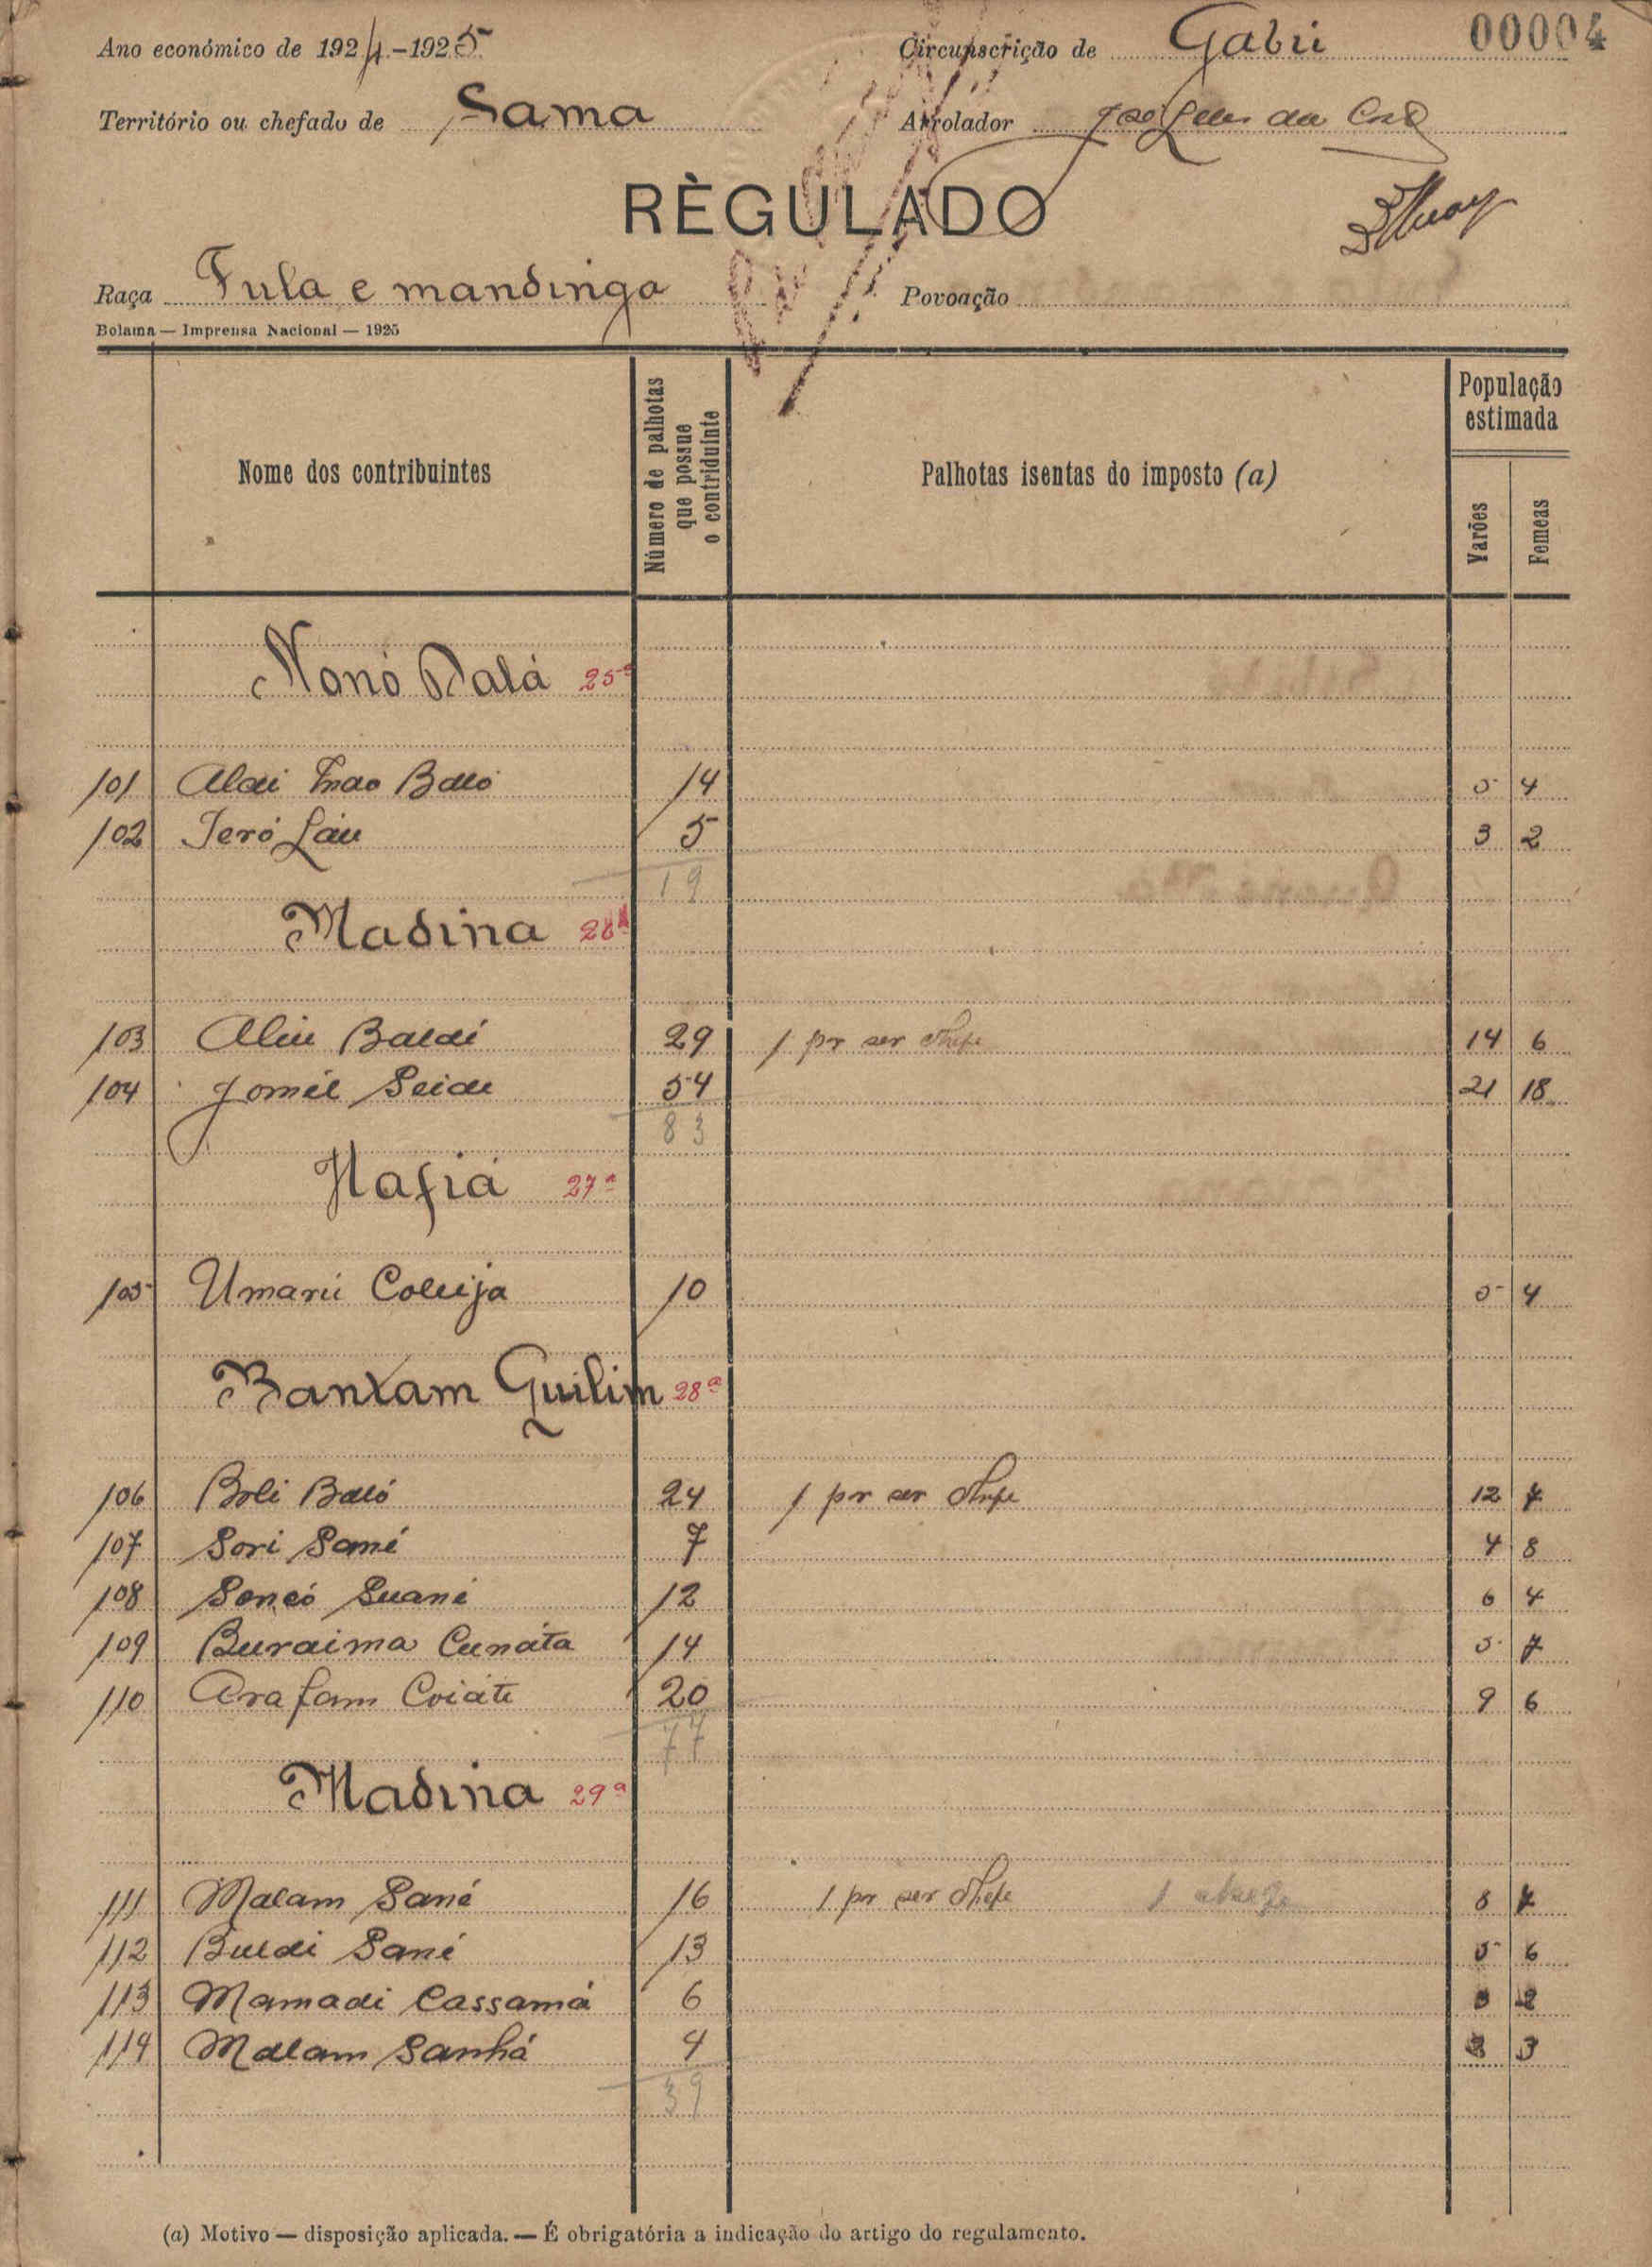 Ano económico de 1924-1925
Circunscrição de Gabú 00004
Território ou chefado de Sama
Arrolador da
RÈGULADO
Raça Fula e mandinga
Povoação
Bolama — Imprensa Nacional — 1925
Nome dos contribuintes
Número de palhotas que possue o contriduinte
Palhotas isentas do imposto (a)
População estimada
Varões
Femeas
Nonó Dalá 25ª
101 Alai Baló 14 5 4
102 Jeró Láu 5 3 2
19
Madina
103 Aliu Baldé 29 1 por ser chefe 14 6
104 Jomél Seidi 54 21 18
83
Hafiá 27ª
105 Umarú Coluija 10 5 4
Bantam Guilim 28ª
106 Boli Baló 24 1 por ser chefe 12 7
107 Sori Sané 7 4 8
108 Soncó Suané 12 6 4
109 Buraima Cunáta 14 5 7
110 Arafam Coiáte 20 9 6
77
Madina 29ª
111 Malam Sané 16 1 por ser chefe 1 8 7
112 Buldi Sané 13 5 6
113 Mamadi Cassamá 6
114 Malam Sanhá 4 3
39
(a) Motivo — disposição aplicada. — É obrigatória a indicação do artigo do regulamento.